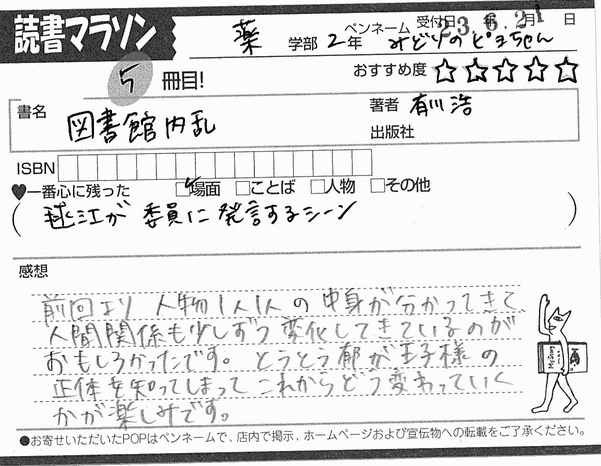 読書マラソン
薬 学部 2年
ペンネーム みどりのぴよちゃん
受付日 23年 6月21日
5 冊目!
おすすめ度 ☆☆☆☆☆
書名 図書館内乱
著者 有川浩
出版社
ISBN
♥一番心に残った ☑場面 □ことば □人物 □その他
(毬江が 委員に 発言するシーン)
感想
前回より 人物1人1人の中身が分かってきて
人間関係も少しずつ変化してきているのが
おもしろかったです。とうとう郁が王子様の
正体を知ってしまって これからどう変わっていく
かが楽しみです。
My Bag
●お寄せいただいたPOPはペンネームで、店内で掲示、ホームページおよび宣伝物への転載をご了承ください。